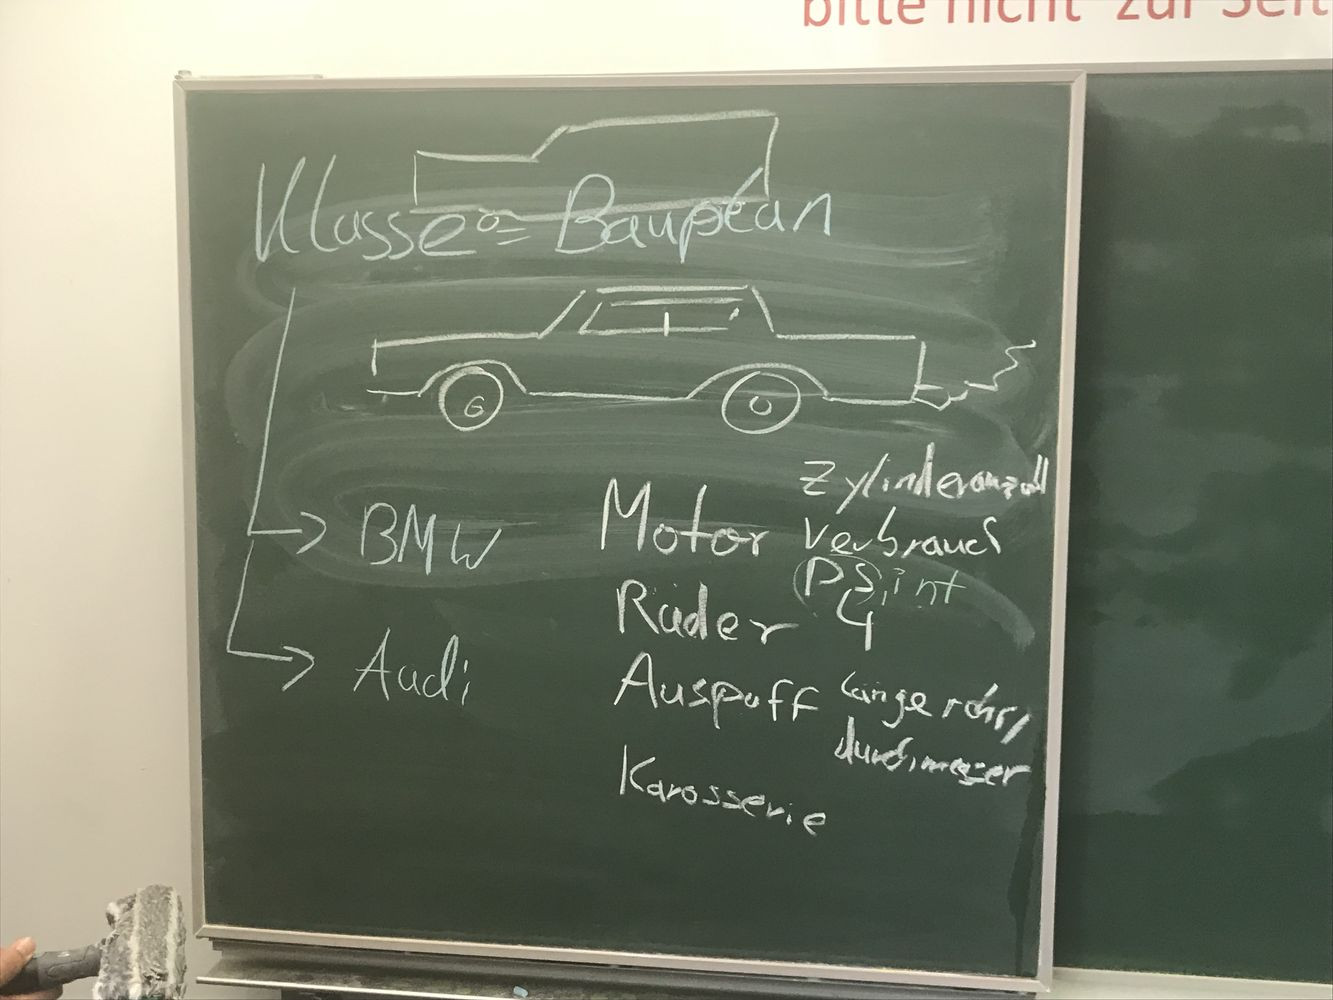 bitte nicht zur Seit
Klasse ≙ Bauplan
BMW
Audi
Zylinderanzahl
Motor Verbrauch
PS, int
Räder 4
Auspuff länge rohr,
durchmesser
Karosserie